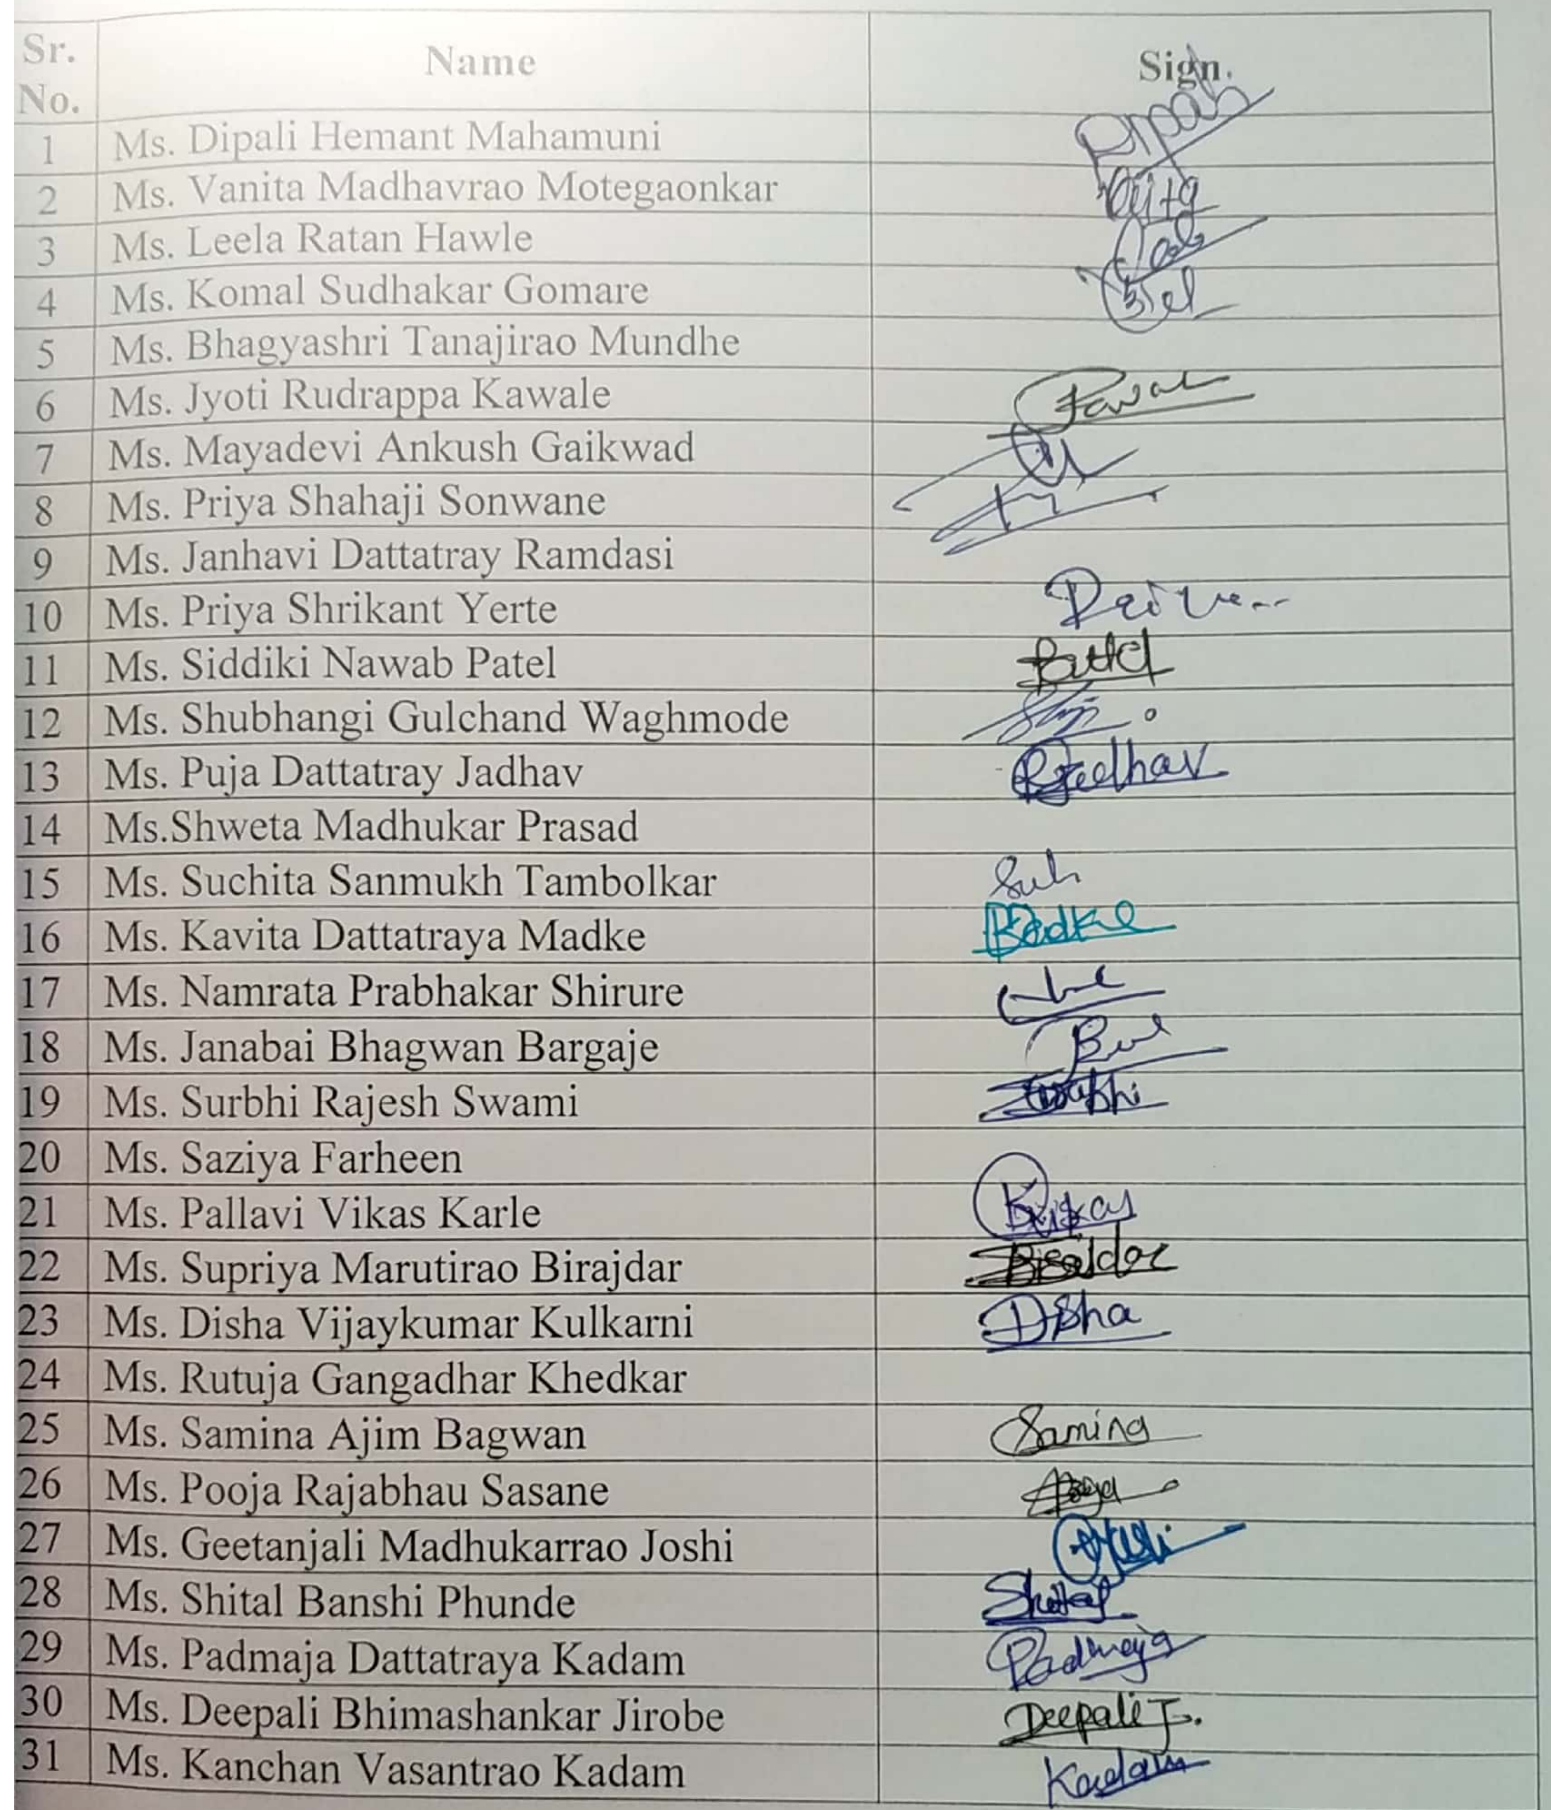 Sr. No. Name Sign.
1 Ms. Dipali Hemant Mahamuni Dipali
2 Ms. Vanita Madhavrao Motegaonkar
3 Ms. Leela Ratan Hawle
4 Ms. Komal Sudhakar Gomare
5 Ms. Bhagyashri Tanajirao Mundhe
6 Ms. Jyoti Rudrappa Kawale
7 Ms. Mayadevi Ankush Gaikwad
8 Ms. Priya Shahaji Sonwane
9 Ms. Janhavi Dattatray Ramdasi
10 Ms. Priya Shrikant Yerte
11 Ms. Siddiki Nawab Patel
12 Ms. Shubhangi Gulchand Waghmode
13 Ms. Puja Dattatray Jadhav
14 Ms.Shweta Madhukar Prasad
15 Ms. Suchita Sanmukh Tambolkar
16 Ms. Kavita Dattatraya Madke
17 Ms. Namrata Prabhakar Shirure
18 Ms. Janabai Bhagwan Bargaje
19 Ms. Surbhi Rajesh Swami
20 Ms. Saziya Farheen
21 Ms. Pallavi Vikas Karle
22 Ms. Supriya Marutirao Birajdar
23 Ms. Disha Vijaykumar Kulkarni Disha
24 Ms. Rutuja Gangadhar Khedkar
25 Ms. Samina Ajim Bagwan Samina
26 Ms. Pooja Rajabhau Sasane
27 Ms. Geetanjali Madhukarrao Joshi
28 Ms. Shital Banshi Phunde Shital
29 Ms. Padmaja Dattatraya Kadam Padmaja
30 Ms. Deepali Bhimashankar Jirobe Deepali J.
31 Ms. Kanchan Vasantrao Kadam Kadam